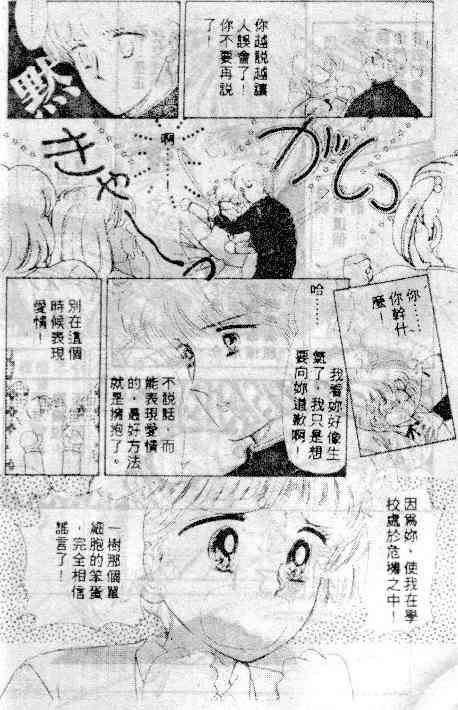 你越說越讓
人誤會了！
你不要再說
了！
默
がしっ
啊………
きゃーっ
你……
你幹什
麼！
哈……
我看妳好像生
氣了，我只是想
要向妳道歉啊！
不說話，而
能表現愛情
的，最好方法
就是擁抱了。
別在這個
時候表現
愛情！
因為妳，使我在學
校處於危機之中！
一樹那個單
細胞的笨蛋
，完全相信
謠言了！